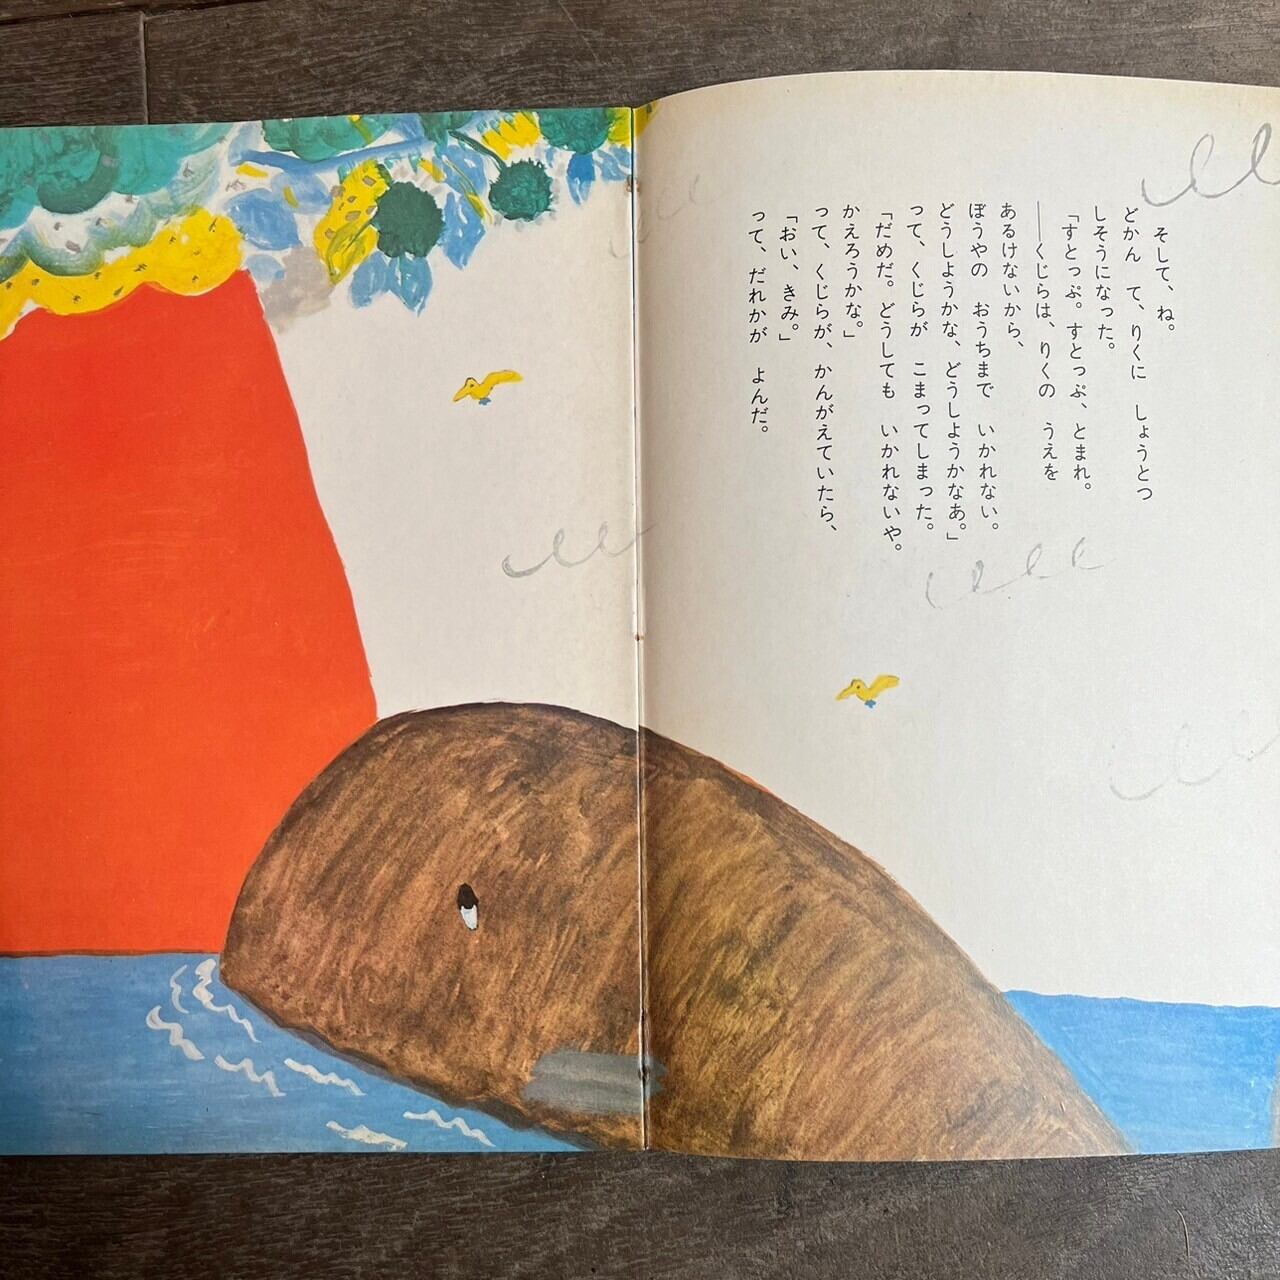 そして、ね。
どかん て、りくに しょうとつ
しそうになった。
「すとっぷ。すとっぷ、とまれ。
──くじらは、りくの うえを
あるけないから、
ぼうやの おうちまで いかれない。
どうしようかな、どうしようかなあ。」
って、くじらが こまってしまった。
「だめだ。どうしても いかれないや。
かえろうかな。」
って、くじらが、かんがえていたら、
「おい、きみ。」
って、だれかが よんだ。